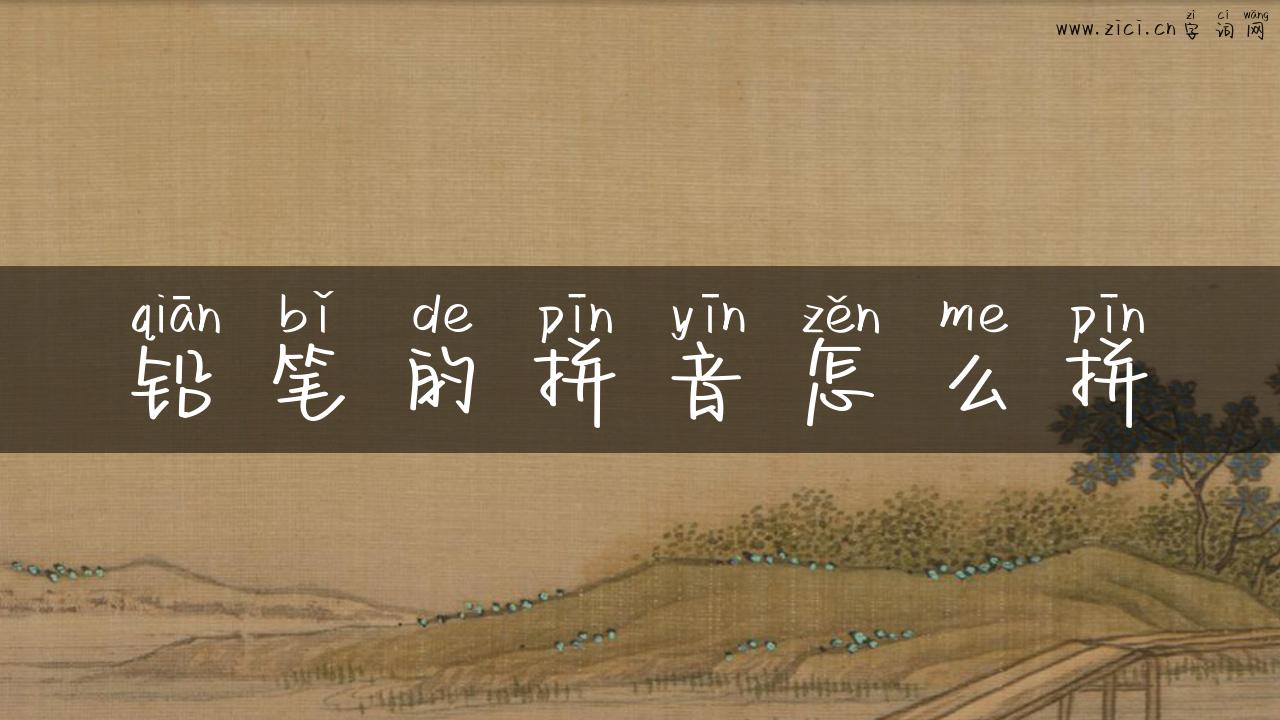 zì cí wǎng
www.zici.cn 字 词 网
qiān bǐ de pīn yīn zěn me pīn
铅 笔 的 拼 音 怎 么 拼